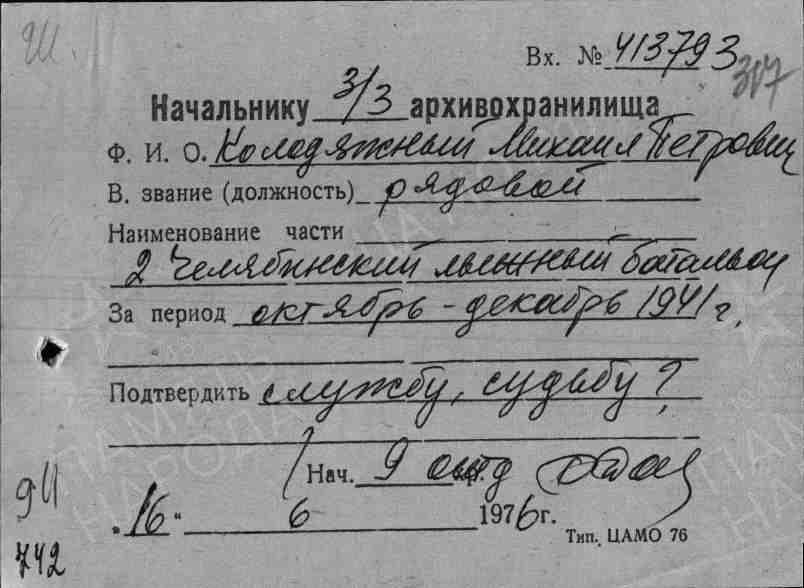 Вх. № 413793
317
Начальнику 3/3 архивохранилища
Ф. И. О. Колодяжный Михаил Петрович
В. звание (должность) рядовой
Наименование части
2 Челябинский лыжный батальон
За период октябрь - декабрь 1941 г.
Подтвердить службу, судьбу?
Нач. 9 отд
"16" 6 1976 г.
9И
742
Тип. ЦАМО 76